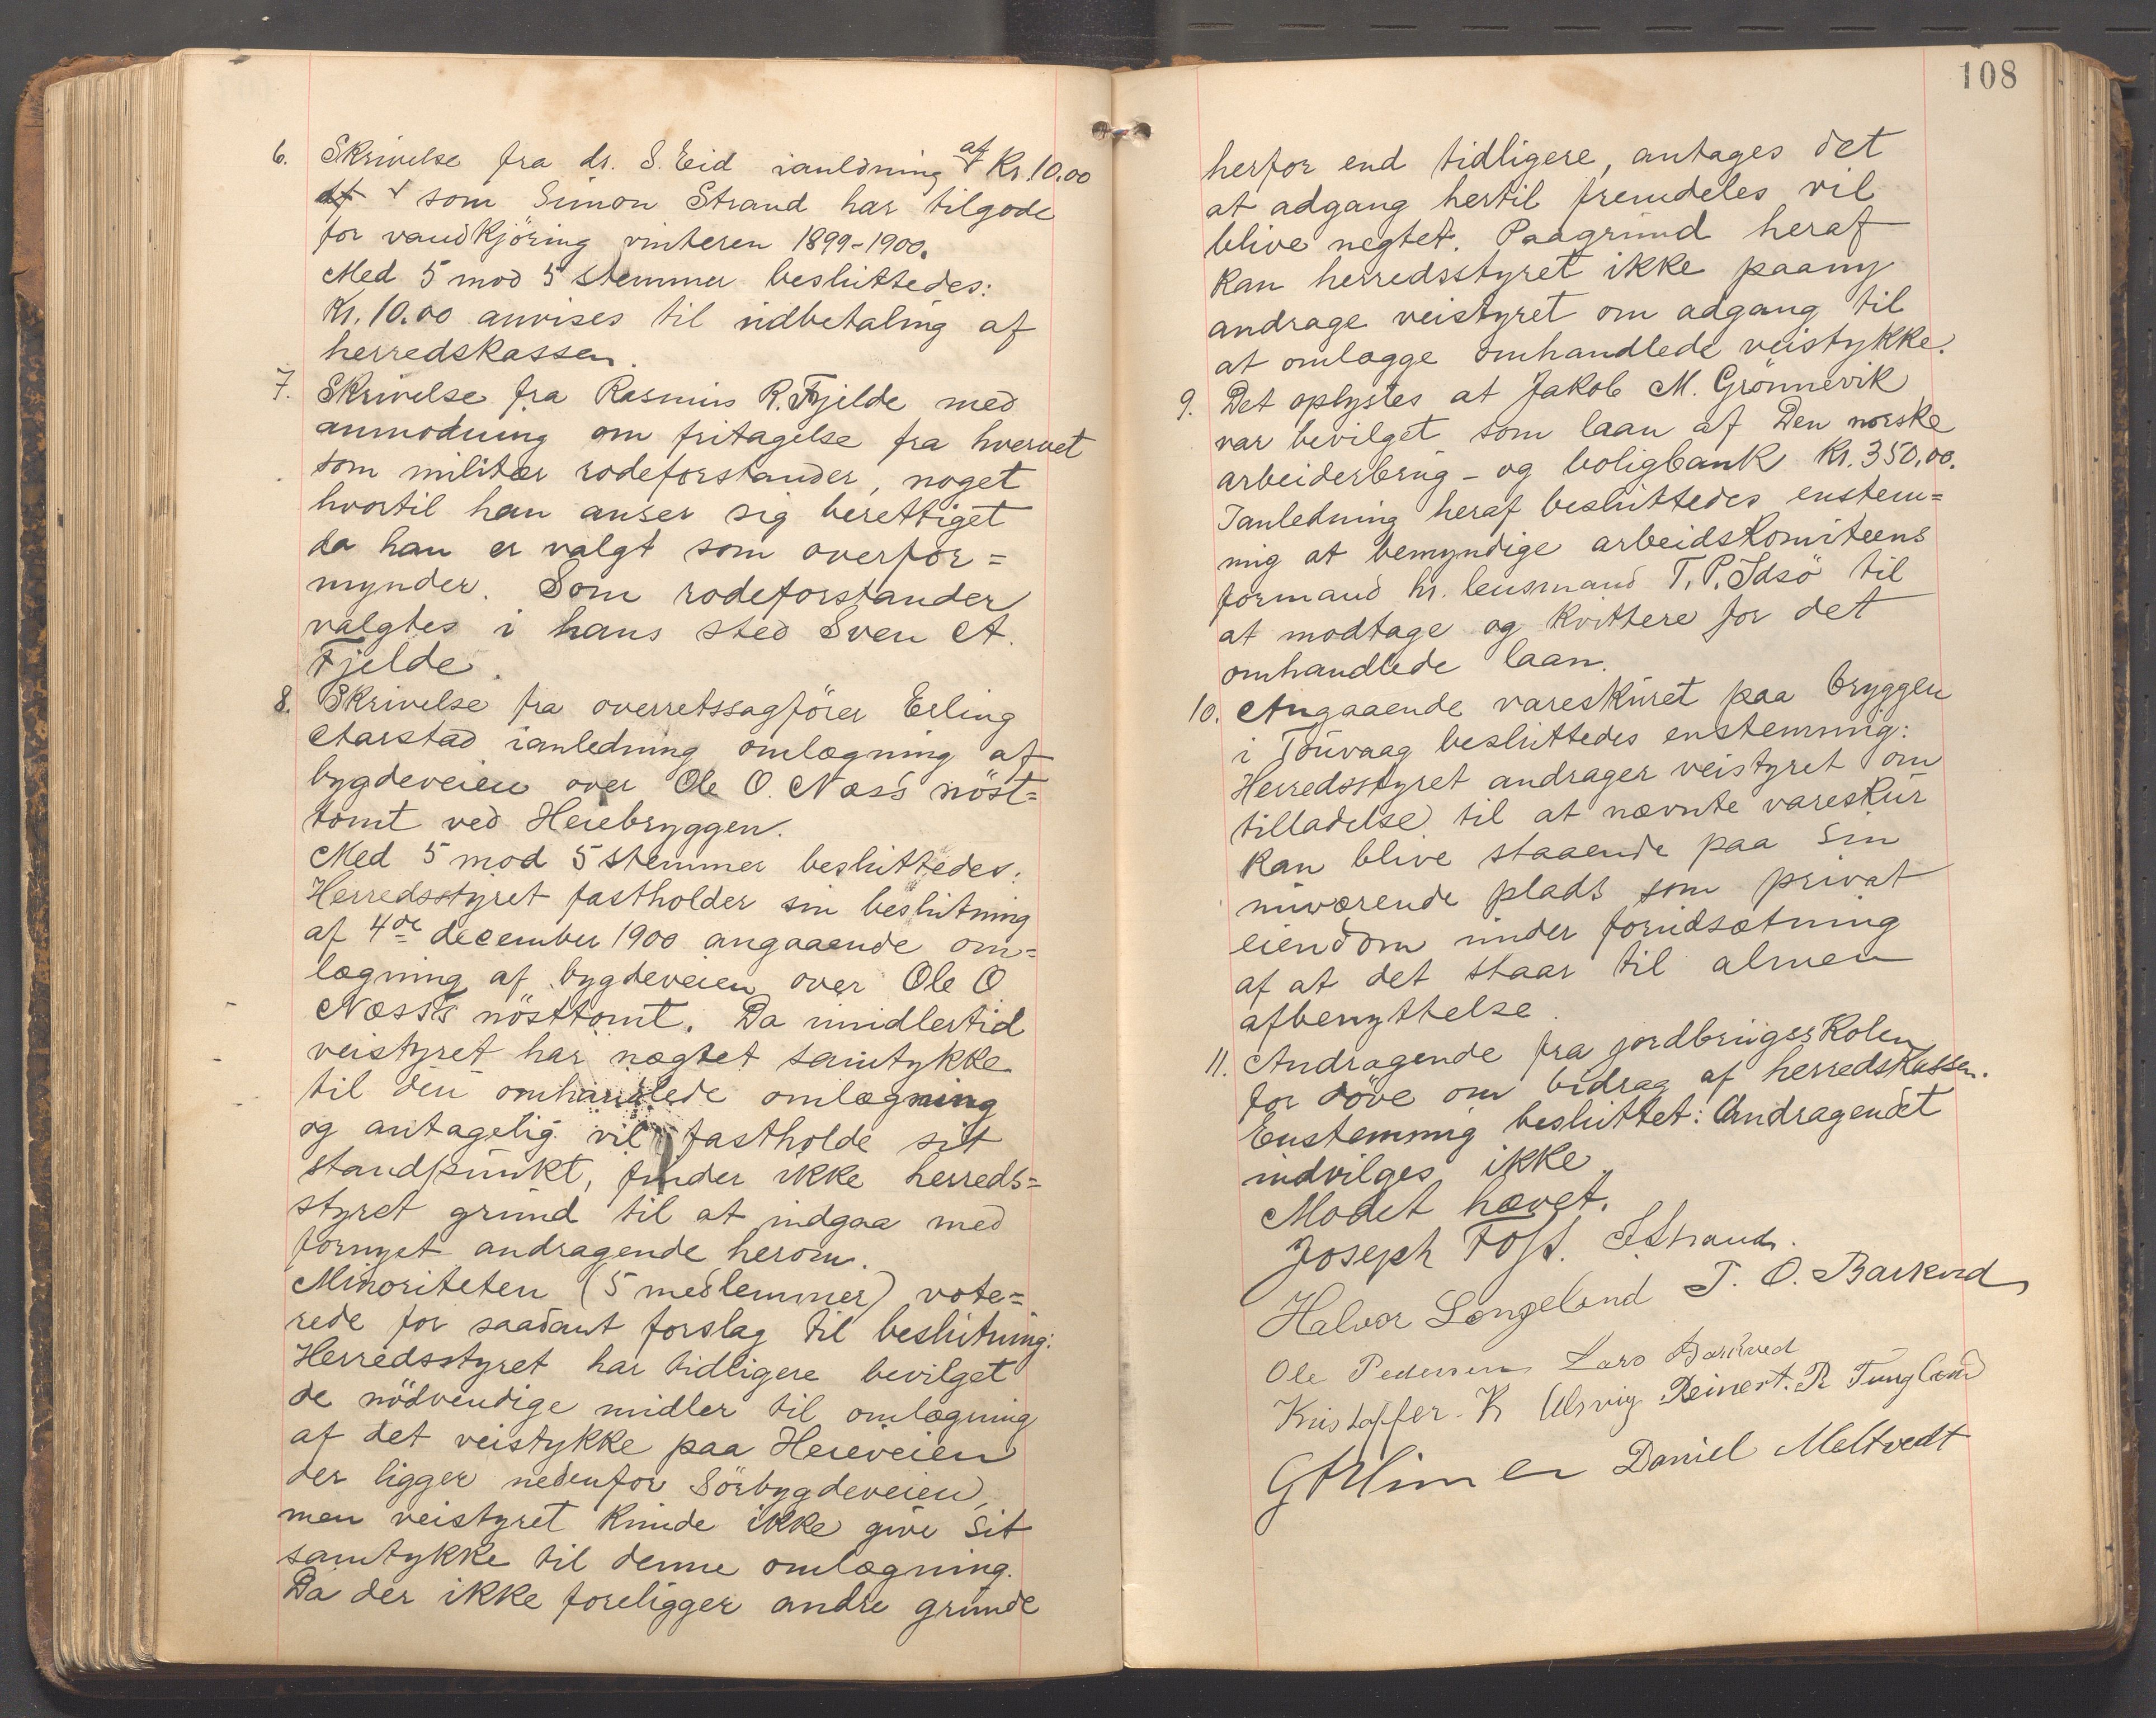 6. Skrivelse fra dr. S. Eid ianldning af Kr. 10.00
som Simon Strand har tilgode
for vandkjöring vinteren 1899-1900.
Med 5 mod 5 stemmer besluttedes:
Kr. 10.00 anvises til udbetaling af
herredskassen.
7. Skrivelse fra Rasmus R. Fjelde med
anmodning om fritagelse fra hvervet
som militær rodeforstander, noget
hvortil han anser sig berettiget
da han er valgt som overfor=
mynder. Som rodeforstander
valgtes i hans sted Sven A.
Fjelde.
8. Skrivelse fra overretssagförer Erling
Aarstad ianledning omlægning af
bygdeveien over Ole O. Næss's nöst=
tomt ved Heiebryggen.
Med 5 mod 5 stemmer besluttedes:
Herredsstyret fastholder sin beslutning
af 4de december 1900 angaaende om=
lægning af bygdeveien over Ole O
Næss's nösttomt. Da imidlertid
veistyret har nægtet samtykke
til den omhandlede omlægning
og antagelig vil fastholde sit
standpunkt, finder ikke herreds=
styret grund til at indgaa med
fornyet andragende herom.
Minoriteten (5 medlemmer) vote=
rede for saadant forslag til beslutning:
Herredsstyret har tidligere bevilget
de nödvendige midler til omlægning
af det veistykke paa Heieveien
der ligger nedenfor Sörbygdeveien,
men veistyret kunde ikke give sit
samtykke til denne omlægning.
Da der ikke foreligger andre grunde
108
herfor end tidligere, antages det
at adgang hertil fremdeles vil
blive negtet. Paagrund heraf
kan herredsstyret ikke paany
andrage veistyret om adgang til
at omlægge omhandlede veistykke.
9. Det oplystes at Jakob M. Grönnevik
var bevilget som laan af Den norske
arbeiderbrug- og boligbank Kr. 350,00.
Ianledning heraf besluttedes enstem=
mig at bemyndige arbeidskomiteens
formand hr. lensmand T. P. Idsö til
at modtage og kvittere for det
omhandlede laan.
10. Angaaende vareskuret paa bryggen
i Touvaag besluttedes enstemmig:
Herredsstyret andrager veistyret om
tilladelse til at nævnte vareskur
kan blive staaende paa sin
nuværende plads som privat
eiendom under forudsætning
af at det staar til almen
afbenyttelse.
11. Andragende fra jordbrugsskolen
for döve om bidrag af herredskassen.
Enstemmig besluttet: Andragendet
indvilges ikke.
Modet hævet.
Joseph Foss. S. Strand.
Halvor Longeland T. O. Barkved
Ole Pedersen Lars Barkved
Kristoffer K Ulsvig Reinert. R Tungland
Daniel Meltvedt